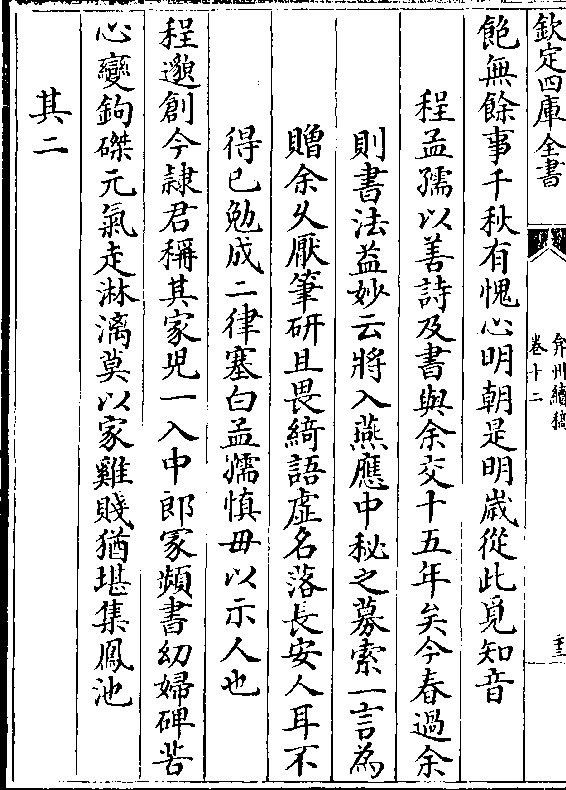 欽定四庫全書
弇州續稿
卷十二
飽無餘事千秋有愧心明朝是明歲從此覓知音
程孟孺以善詩及書與余交十五年矣今春過余
則書法益妙云將入燕應中秘之募索一言為
贈余久厭筆研且畏綺語虛名落長安人耳不
得已勉成二律塞白孟孺慎毋以示人也
程邈創今隸君稱其家兒一入中郎冢頻書幼婦碑苦
心變鉤磔元氣走淋漓莫以家雞賤猶堪集鳳池
其二